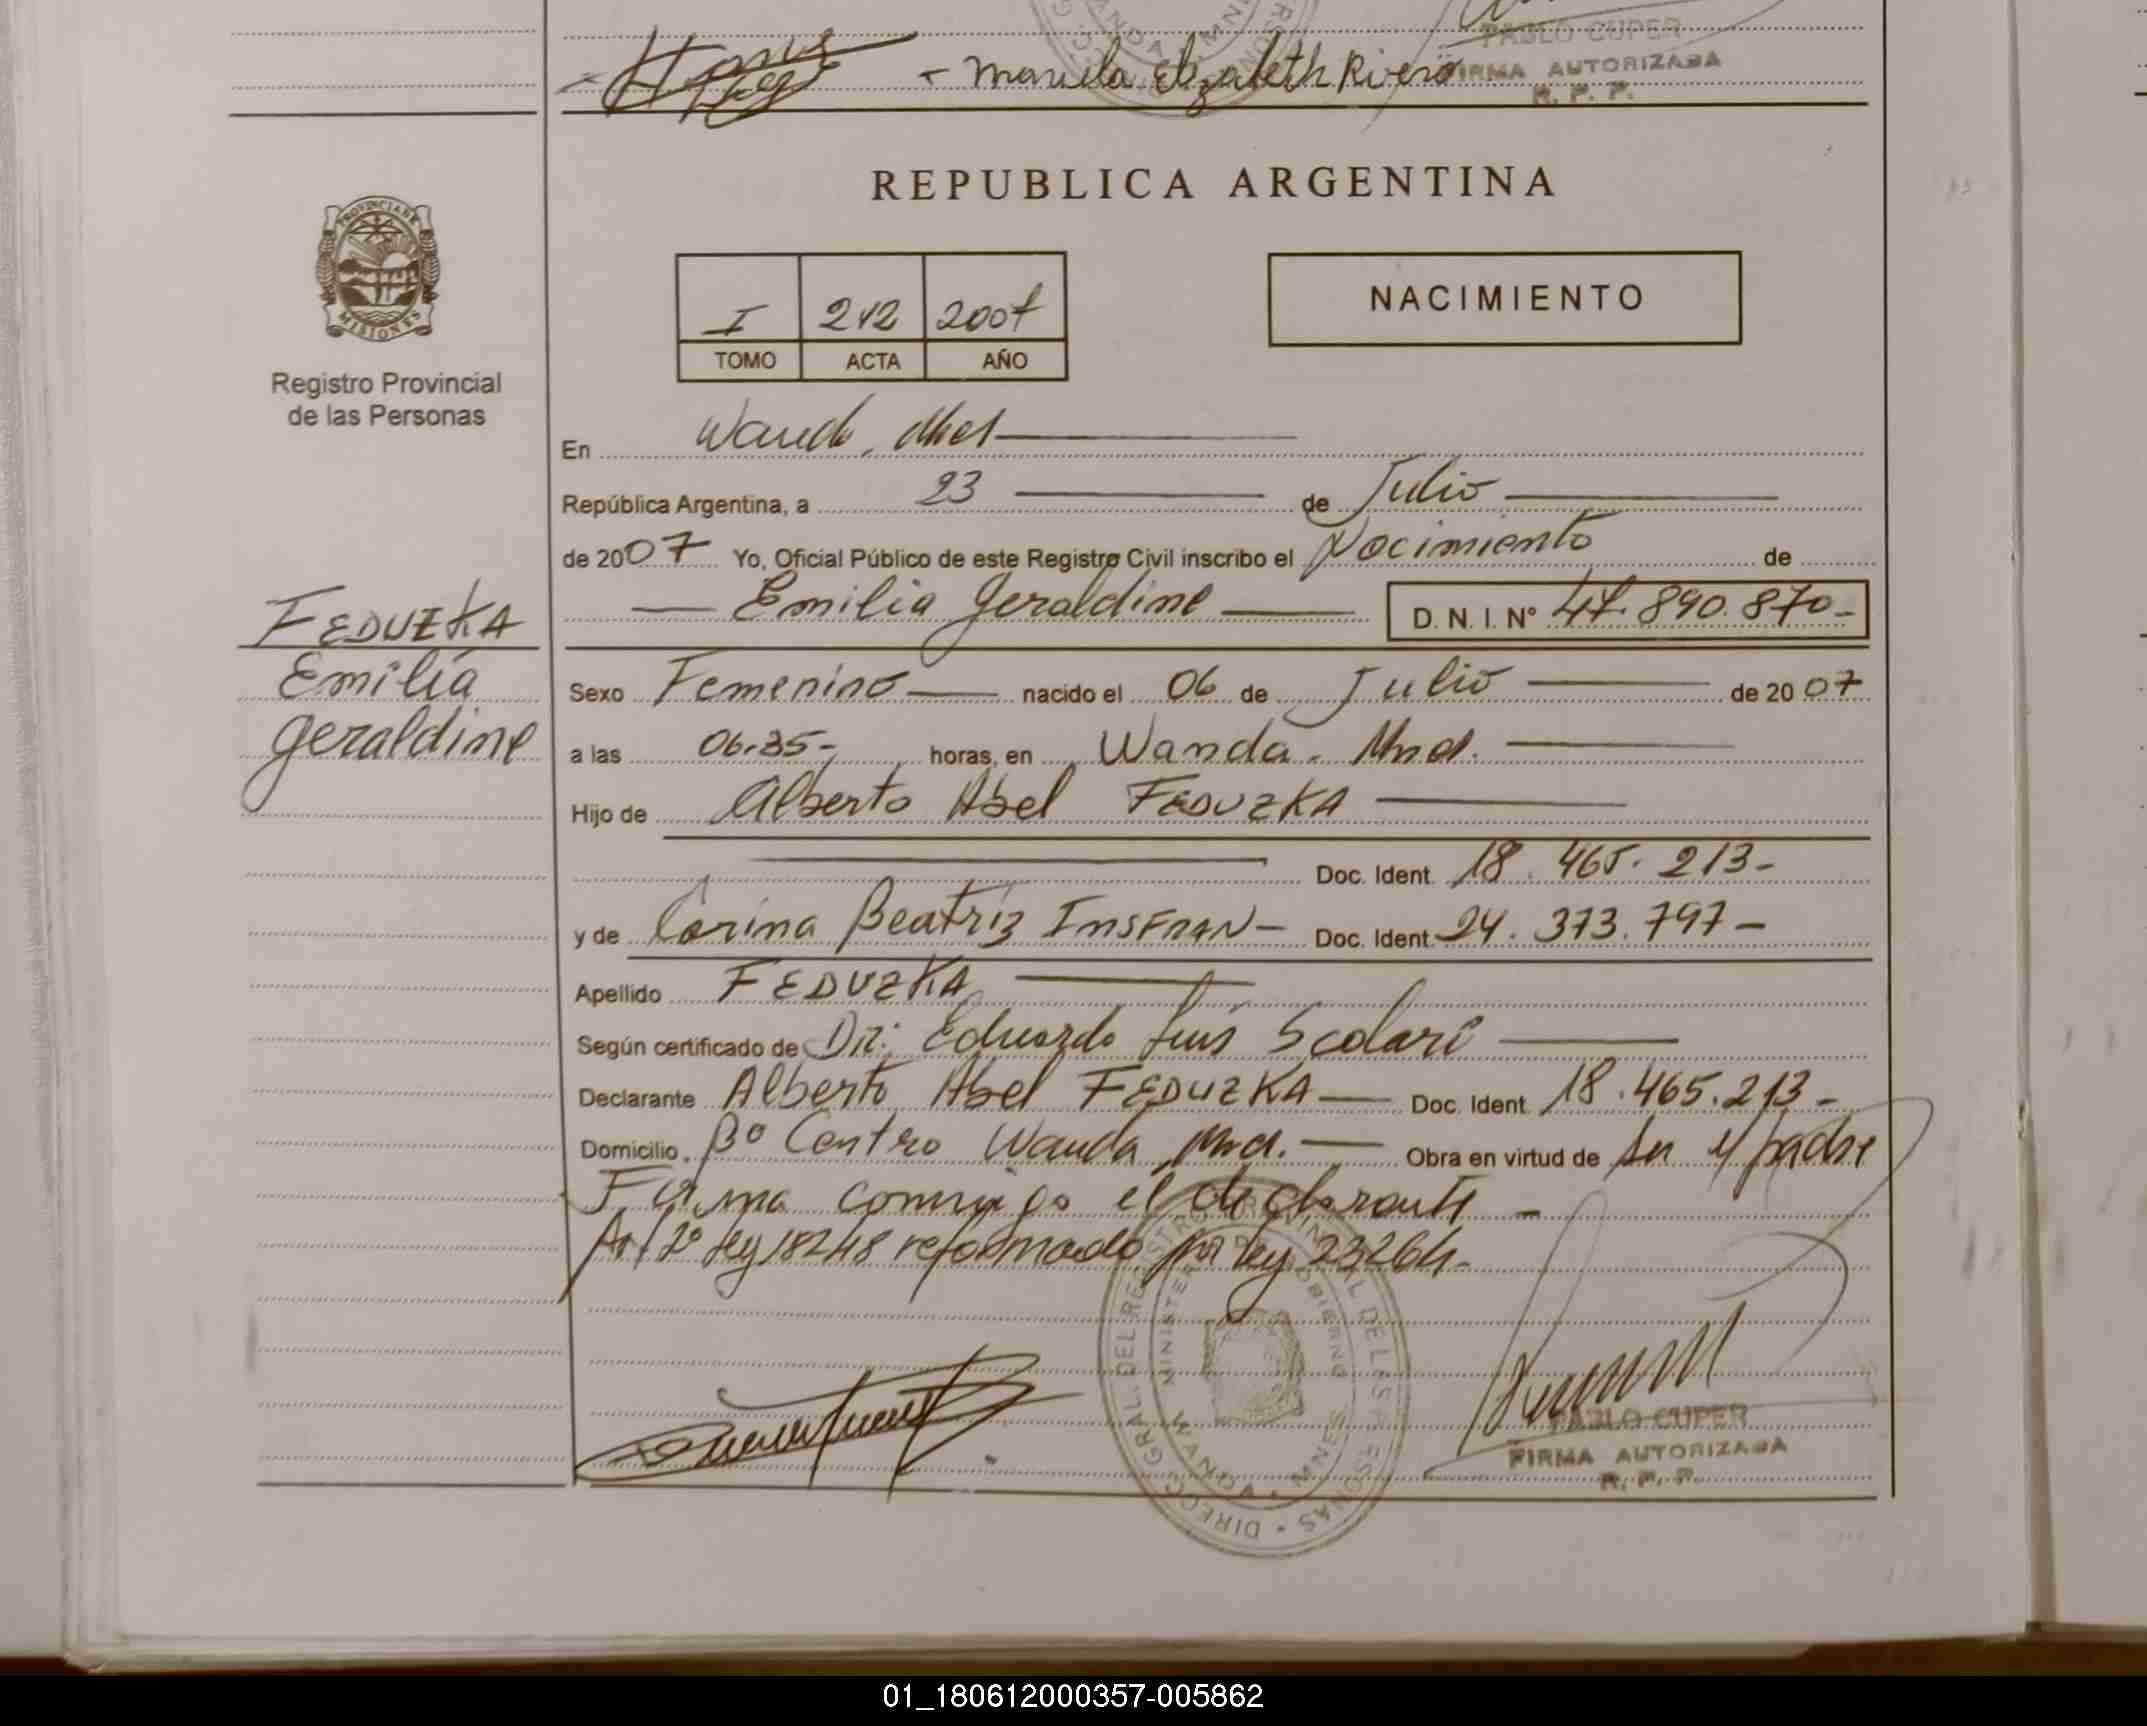 - Manuela Elizabeth Rivero
PABLO CUPER
FIRMA AUTORIZADA
R. P. P.
REPUBLICA ARGENTINA
PROVINCIA DE
MISIONES
Registro Provincial
de las Personas
I 212 2007
TOMO ACTA AÑO
NACIMIENTO
En Wanda, Mnes
República Argentina, a 23 de Julio
de 2007 Yo, Oficial Público de este Registro Civil inscribo el Nacimiento de
Emilia Geraldine D. N. I. Nº 47.890.870-
FEDUZKA
Emilia
Geraldine
Sexo Femenino nacido el 06 de Julio de 2007
a las 06.35- horas, en Wanda - Mnes.
Hijo de Alberto Abel FEDUZKA
Doc. Ident. 18.465.213-
y de Corina Beatriz INSFRAN- Doc. Ident. 24.373.797-
Apellido FEDUZKA
Según certificado de Dr: Eduardo Luis Scolari
Declarante Alberto Abel FEDUZKA Doc. Ident. 18.465.213-
Domicilio Bº Centro Wanda, Mnes. Obra en virtud de Ser el padre
Firma conmigo el declarante -
Art 2º ley 18248 reformado por ley 23264-
DIRECC. GRAL. DEL REGISTRO PROVINCIAL DE LAS PERSONAS
WANDA MNES
PABLO CUPER
FIRMA AUTORIZADA
R. P. P.
01_180612000357-005862